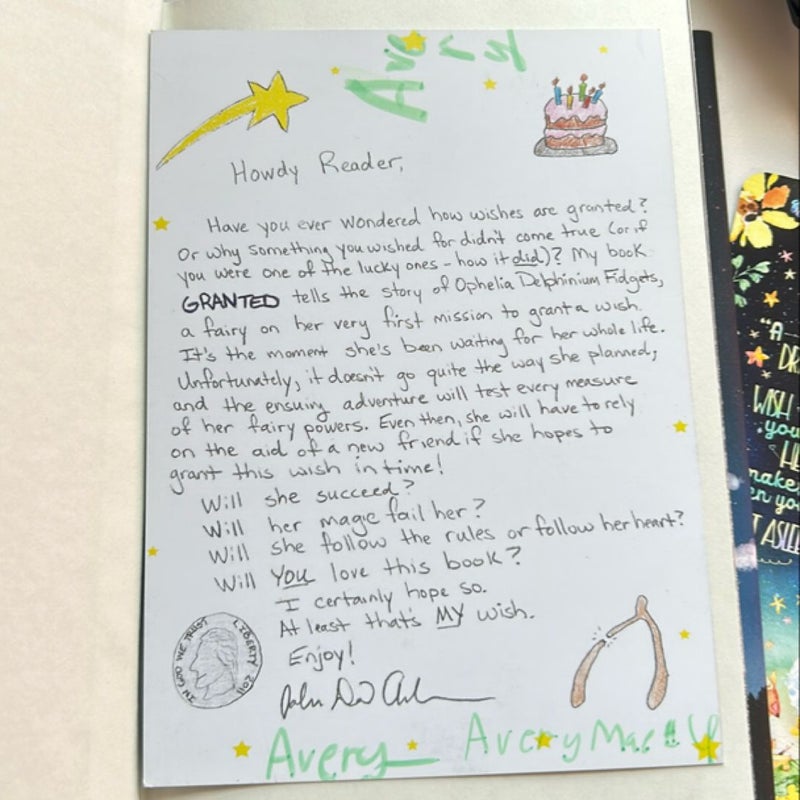 Avery
Howdy Reader,
Have you ever wondered how wishes are granted?
Or why something you wished for didn't come true (or if
you were one of the lucky ones - how it did)? My book
GRANTED tells the story of Ophelia Delphinium Fidgets,
a fairy on her very first mission to grant a wish.
It's the moment she's been waiting for her whole life.
Unfortunately, it doesn't go quite the way she planned,
and the ensuing adventure will test every measure
of her fairy powers. Even then, she will have to rely
on the aid of a new friend if she hopes to
grant this wish in time!
Will she succeed?
Will her magic fail her?
Will she follow the rules or follow her heart?
Will YOU love this book?
I certainly hope so.
At least that's MY wish.
Enjoy!
John
IN GOD WE TRUST
LIBERTY 2011
Avery Avery
"A
DR
WISH
you
HE
make
en yo
T ASLEE